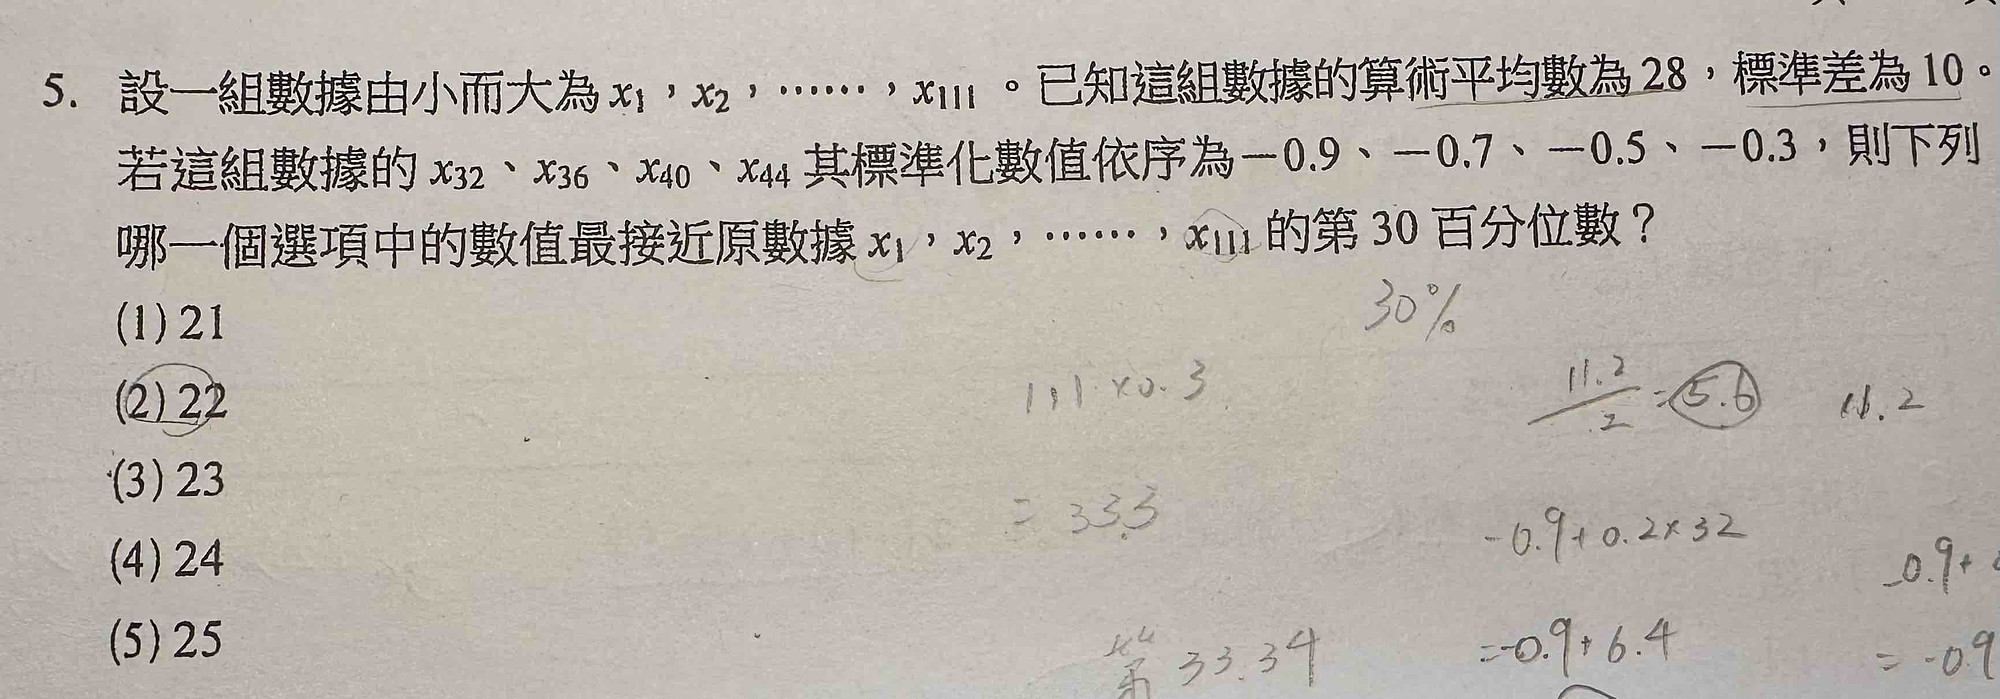 5. 設一組數據由小而大為 x₁，x₂，……，x₁₁₁。已知這組數據的算術平均數為 28，標準差為 10。
若這組數據的 x₃₂、x₃₆、x₄₀、x₄₄ 其標準化數值依序為－0.9、－0.7、－0.5、－0.3，則下列
哪一個選項中的數值最接近原數據 x₁，x₂，……，x₁₁₁ 的第 30 百分位數？
(1) 21
30%
(2) 22
111×0.3
11.2/2=5.6
11.2
(3) 23
= 33.3
-0.9+0.2×32
(4) 24
-0.9+
(5) 25
第 33.34
=-0.9+6.4
= -0.9